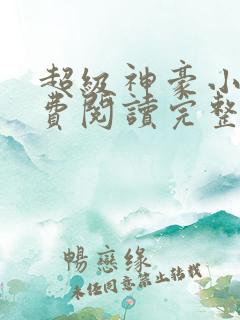 超級神豪小
費閱讀完整
暢戀缘
未经同意禁止转载